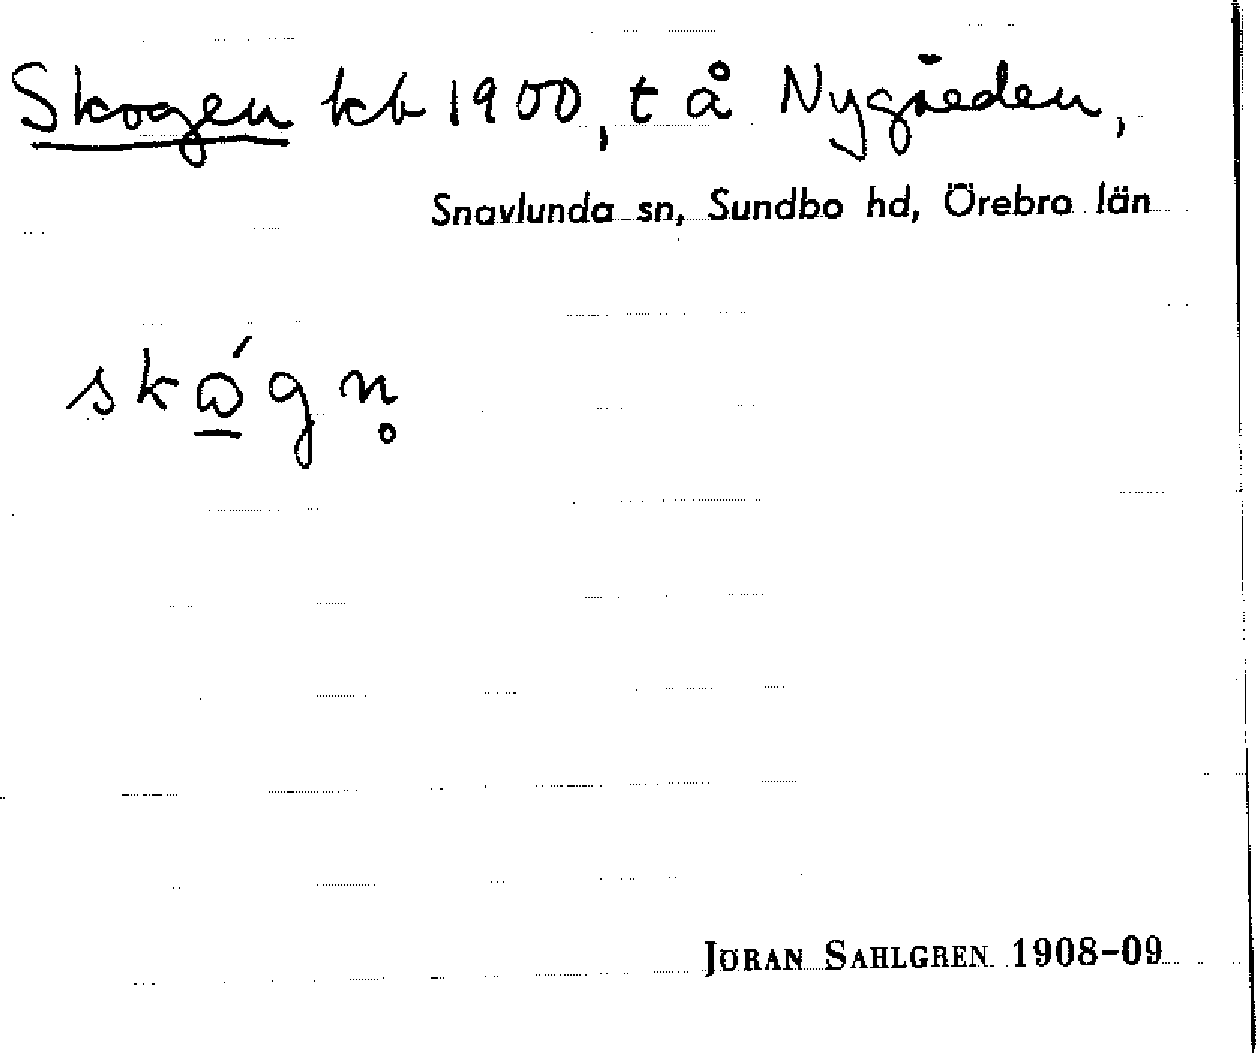 Skogen kb 1900, t å Nygärden,
Snavlunda sn, Sundbo hd, Örebro län
skώ̲gn̥
JÖRAN SAHLGREN 1908-09